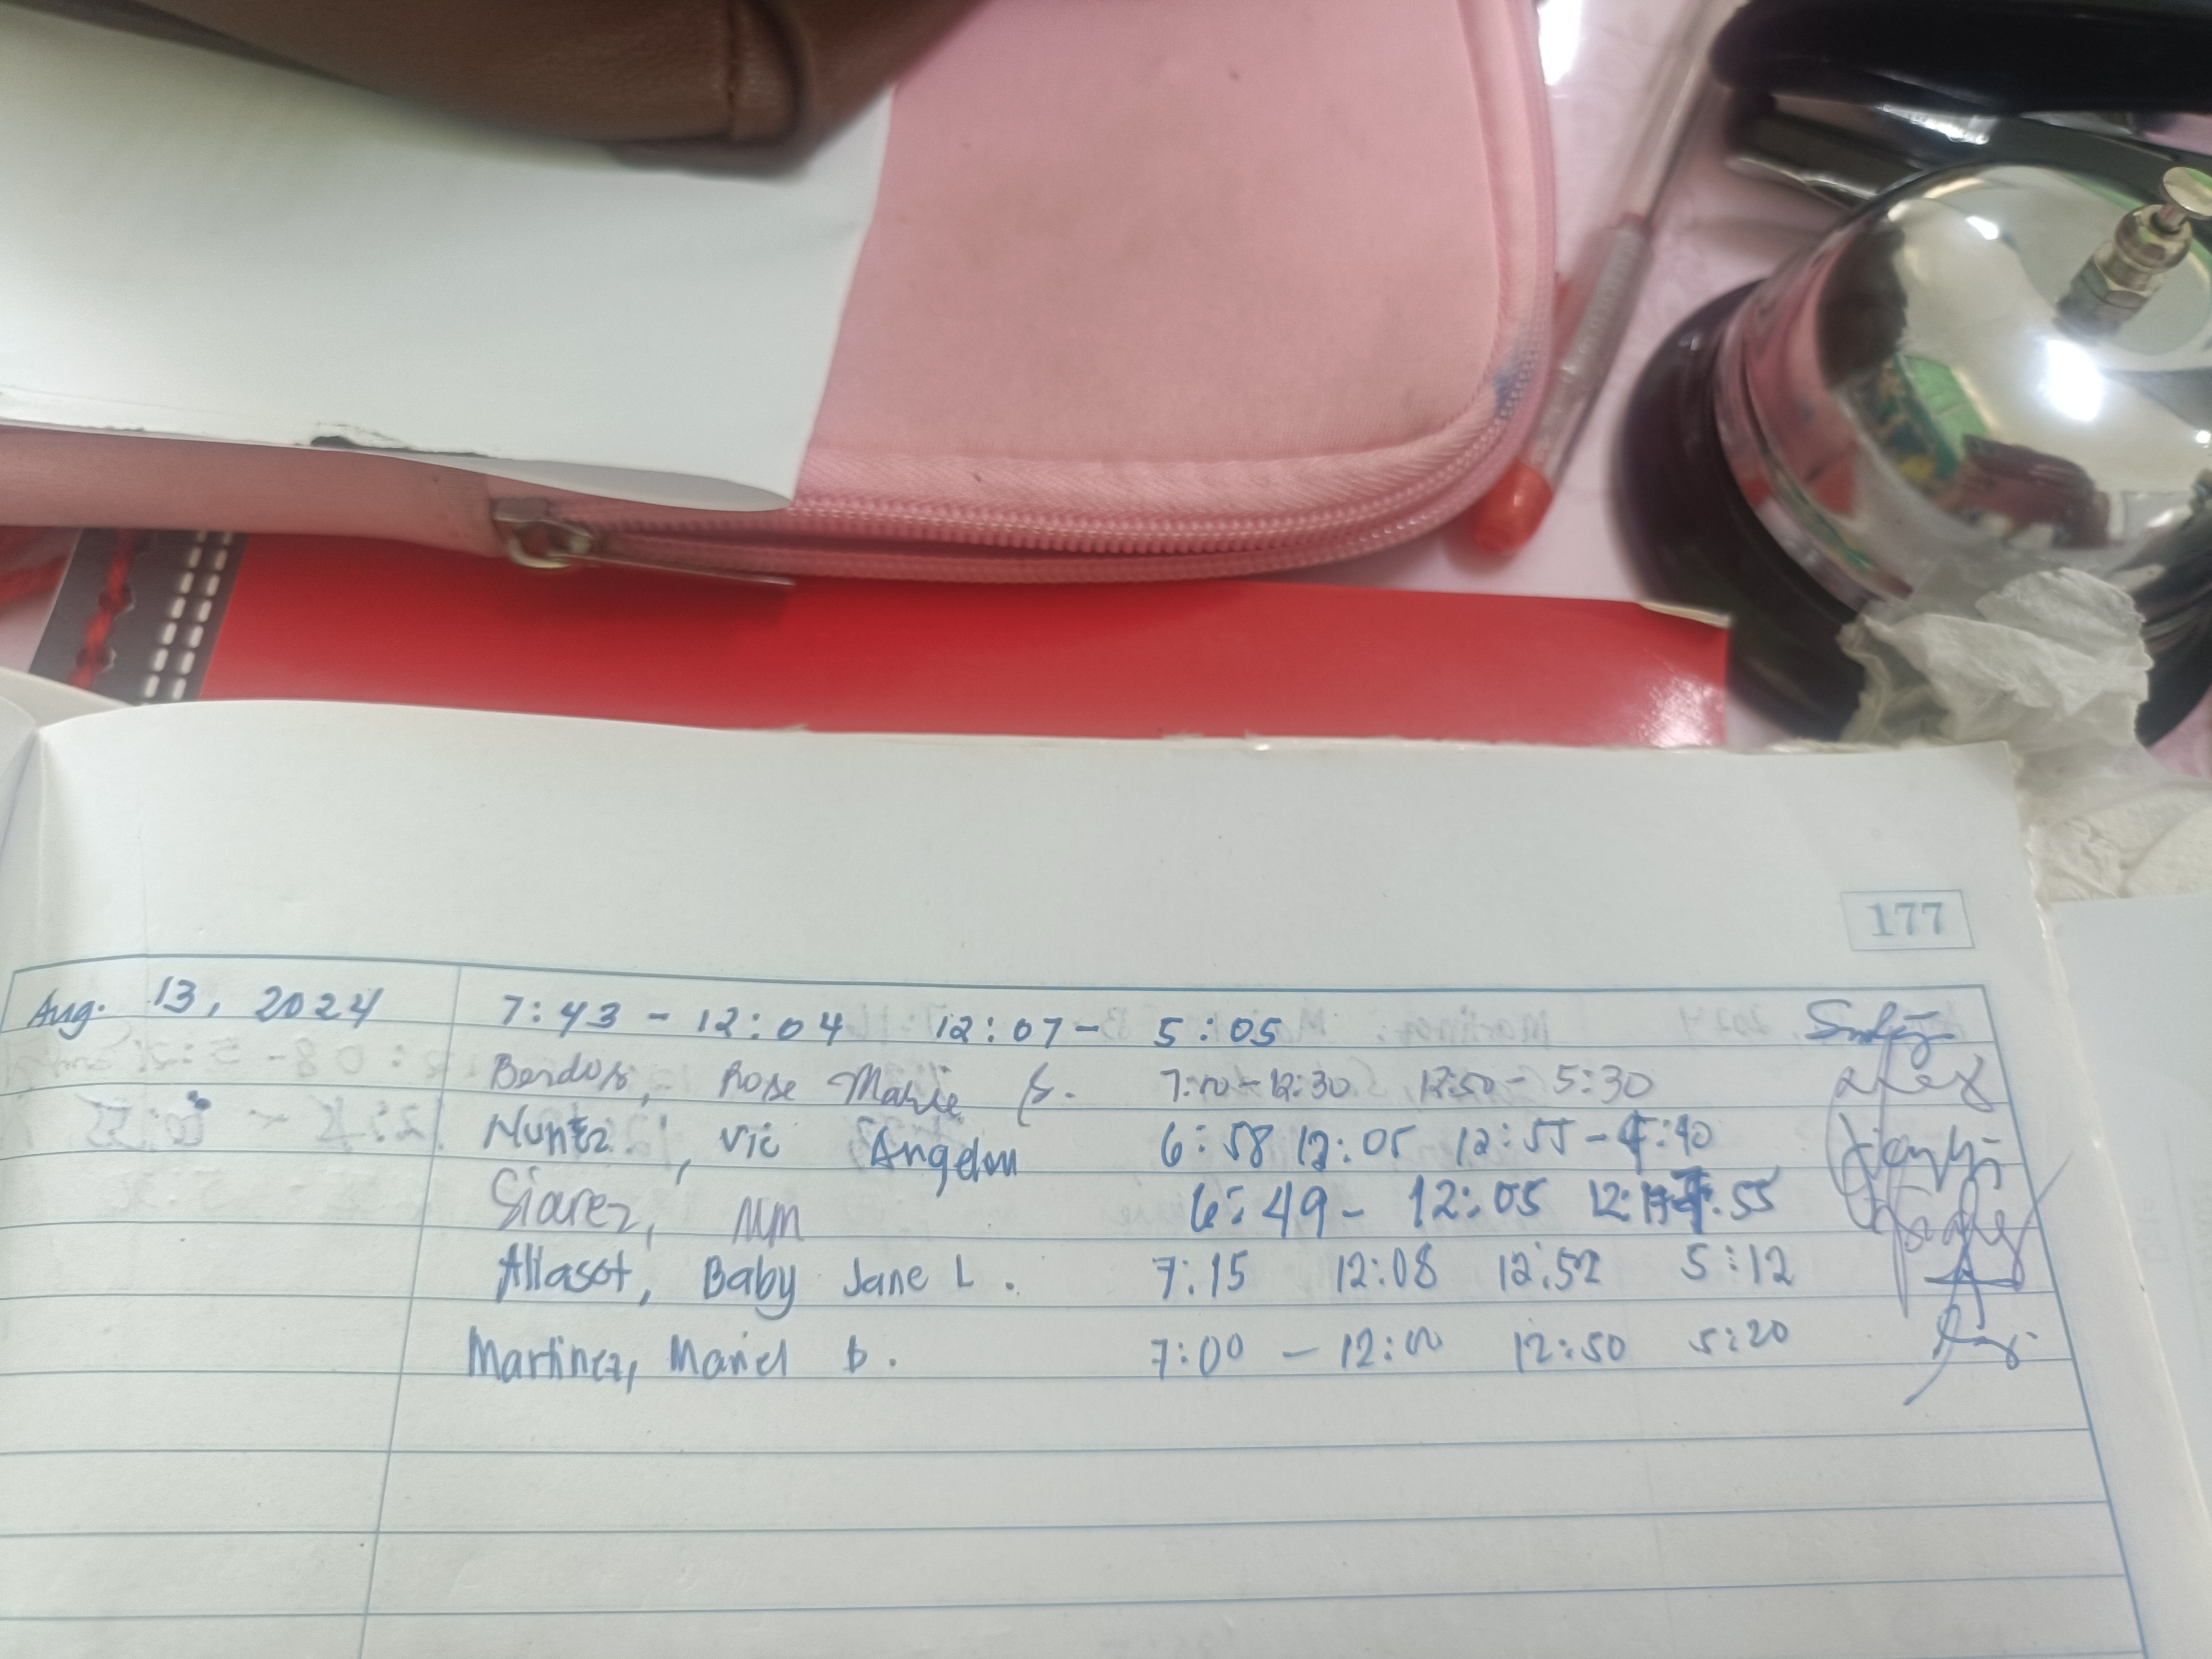 177
Aug. 13, 2024 7:43 - 12:04 12:07 - 5:05
Rose Marie 7:00 - 12:30 12:50 - 5:30
Nuñez, Vic Angelou 6:58 12:05 12:55 -
Siarez, 6:49 - 12:05
Aliasot, Baby Jane L. 7:15 12:08 12:52 5:12
Martinez, Mariel B. 7:00 - 12:00 12:50 5:20